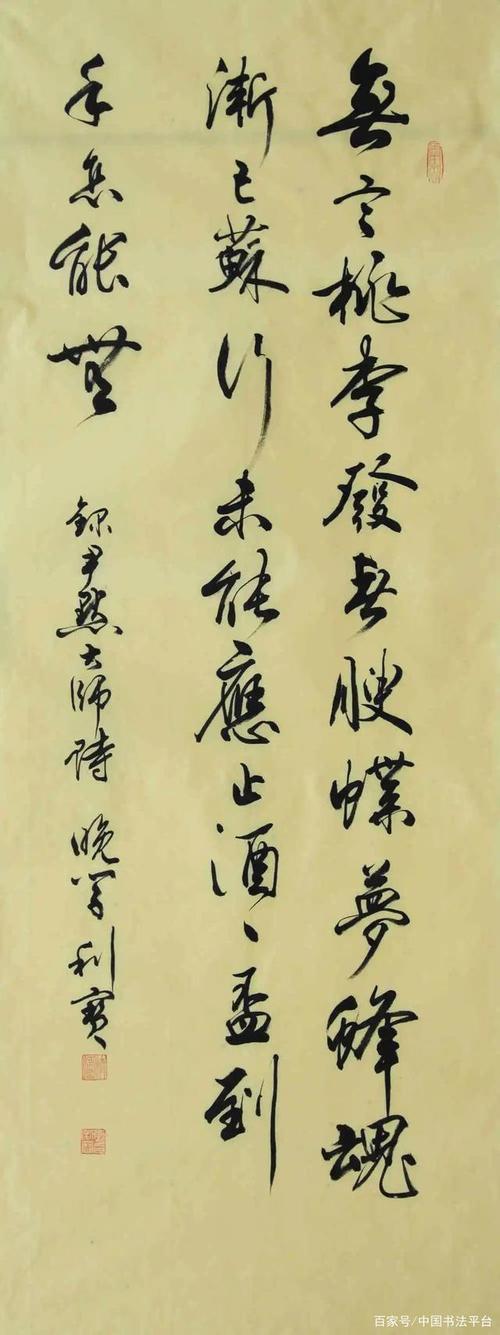 無言桃李發春腴蝶夢蜂魂
漸已蘇行未能應止酒、盃到
手怎能無
錄尹默大師詩 晚學利寶
百家号/中国书法平台